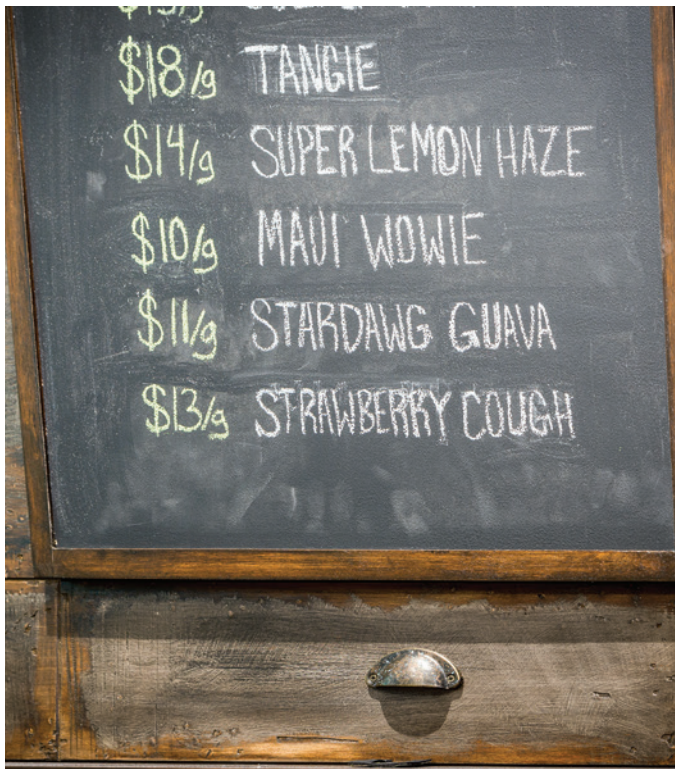 $18/g TANGIE
$14/g SUPER LEMON HAZE
$10/g MAUI WOWIE
$11/g STARDAWG GUAVA
$13/g STRAWBERRY COUGH